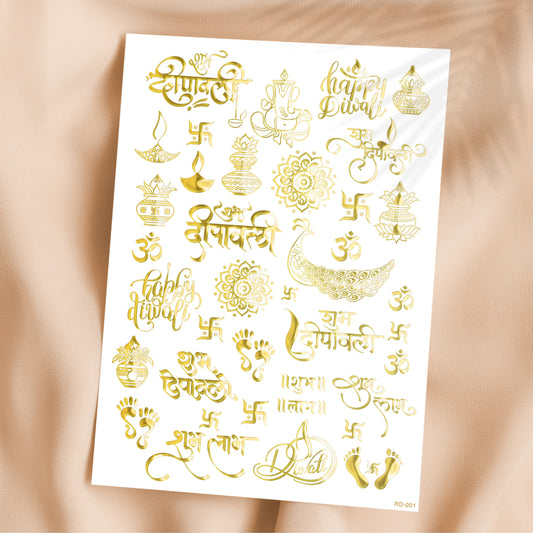 शुभ
दीपावली
happy
Diwali
शुभ
दिपावली
शुभ
दीपावली
ॐ
happy
diwali
ॐ
शुभ
दीपावली
ॐ
शुभ
दिपावली
॥शुभ॥
॥लाभ॥
शुभ
लाभ
शुभ लाभ
Diwali
RD-001